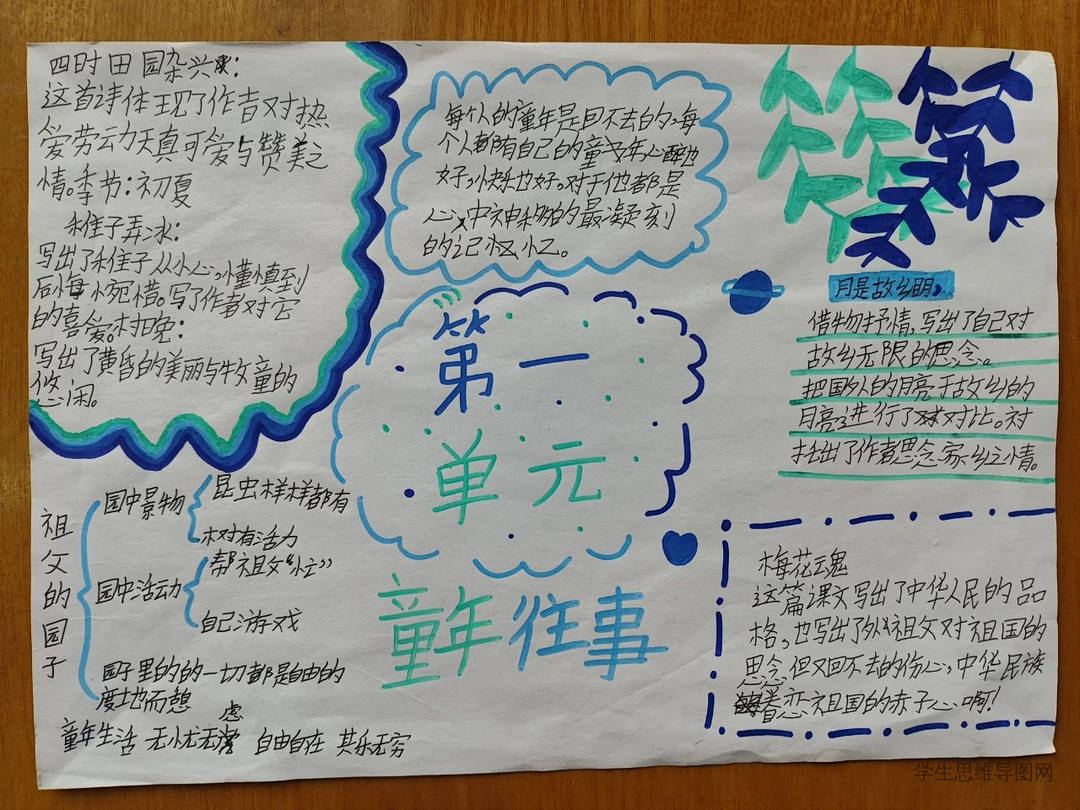 四时田园杂兴:
这首诗体现了作者对热
爱劳动天真可爱与赞美之
情。季节:初夏
稚子弄冰:
写出了稚子从小心,懂慎到
后悔惋惜。写了作者对它
的喜爱。村晚:
写出了黄昏的美丽与牧童的
悠闲。
每个人的童年是回不去的,每
个人都有自己的童年,心酸也
好,快乐也好。对于他都是
心中神秘的最凝刻
的记忆忆。
月是故乡明,
借物抒情,写出了自己对
故乡无限的思念。
把国外的月亮于故乡的
月亮进行了对比。衬
托出了作者思念家乡之情。
第一
单元
童年往事
祖父的园子
园中景物
昆虫样样都有
树有活力
园中活动
帮祖父“忙”
自己游戏
园子里的的一切都是自由的
童年生活 无忧无虑 自由自在 其乐无穷
梅花魂
这篇课文写出了中华人民的品
格,也写出了外祖父对祖国的
思念,但又回不去的伤心,中华民族
眷恋祖国的赤子心啊!
学生思维导图网